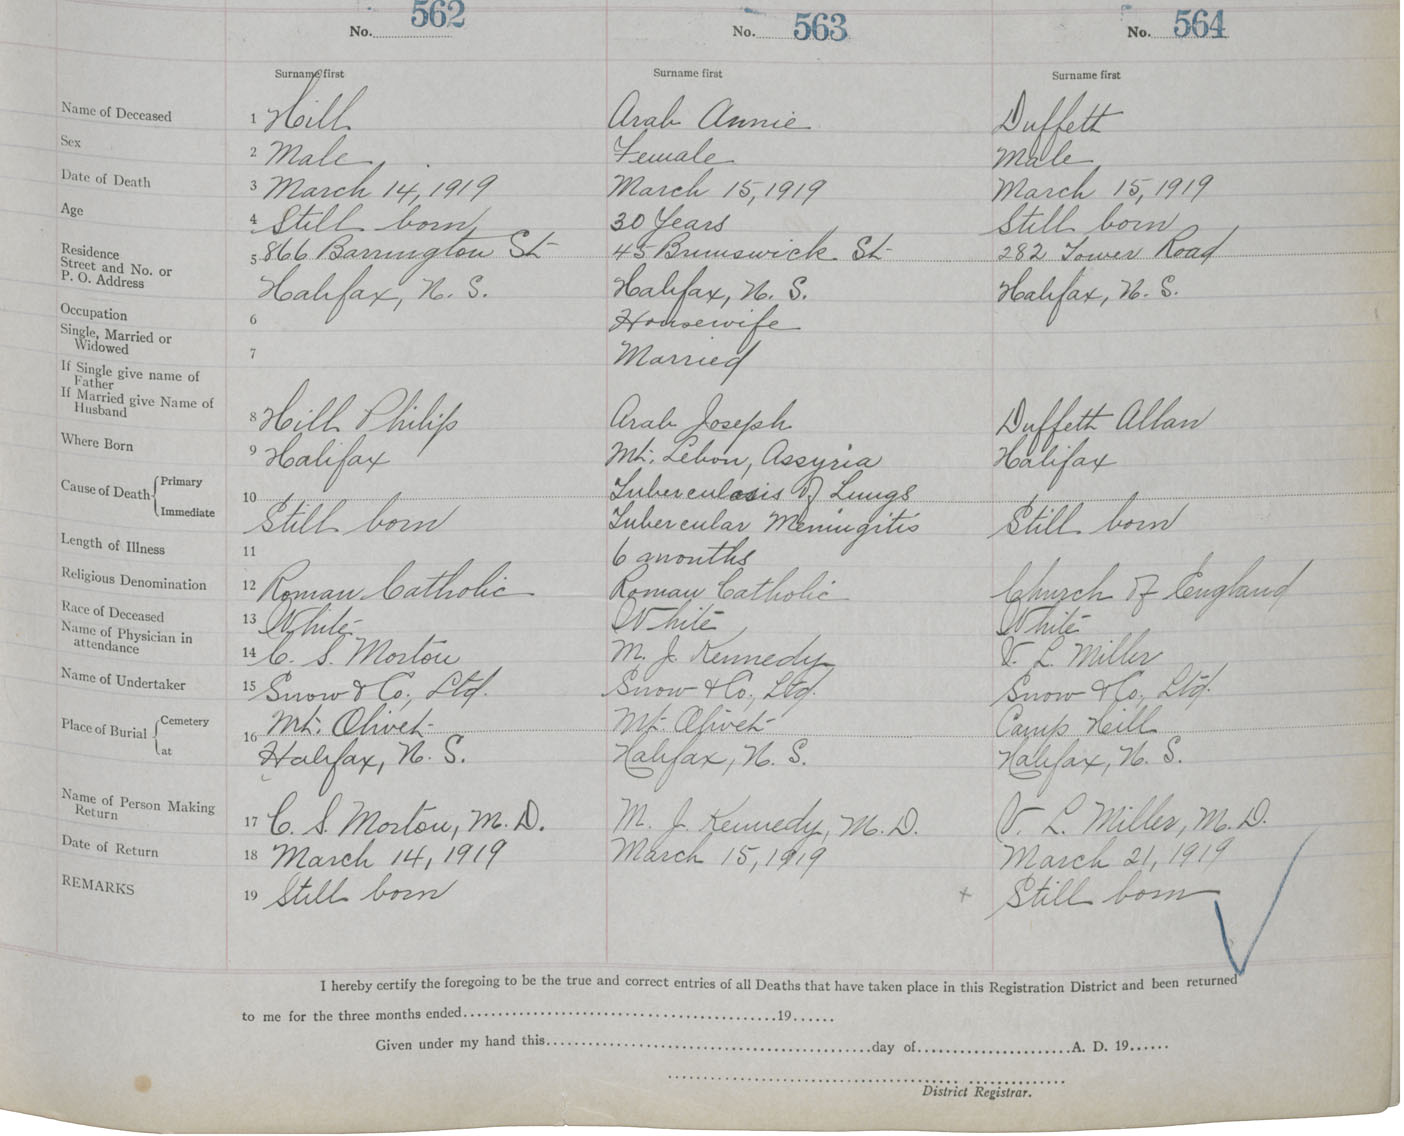 No. 562 No. 563 No. 564
Surname first Surname first Surname first
Name of Deceased 1 Hill Arab Annie Duffett
Sex 2 Male Female Male
Date of Death 3 March 14, 1919 March 15, 1919 March 15, 1919
Age 4 Still born 30 Years Still born
Residence 5 866 Barrington St 45 Brunswick St 282 Tower Road
Street and No. or
P. O. Address Halifax, N. S. Halifax, N. S. Halifax, N. S.
Occupation 6 Housewife
Single, Married or 7 Married
Widowed
If Single give name of
Father
If Married give Name of
Husband 8 Hill Philip Arab Joseph Duffett Allan
Where Born 9 Halifax Mt. Lebon, Assyria Halifax
Cause of Death { Primary 10 Tuberculosis of Lungs
Immediate Still born Tubercular Meningitis Still born
Length of Illness 11 6 months
Religious Denomination 12 Roman Catholic Roman Catholic Church of England
Race of Deceased 13 White White White
Name of Physician in
attendance 14 C. S. Morton M. J. Kennedy V. L. Miller
Name of Undertaker 15 Snow & Co., Ltd. Snow & Co., Ltd. Snow & Co., Ltd.
Place of Burial { Cemetery 16 Mt. Olivet Mt. Olivet Camp Hill
at Halifax, N. S. Halifax, N. S. Halifax, N. S.
Name of Person Making
Return 17 C. S. Morton, M. D. M. J. Kennedy, M. D. V. L. Miller, M. D.
Date of Return 18 March 14, 1919 March 15, 1919 March 21, 1919
REMARKS 19 Still born + Still born
I hereby certify the foregoing to be the true and correct entries of all Deaths that have taken place in this Registration District and been returned
to me for the three months ended 19
Given under my hand this day of A. D. 19
District Registrar.